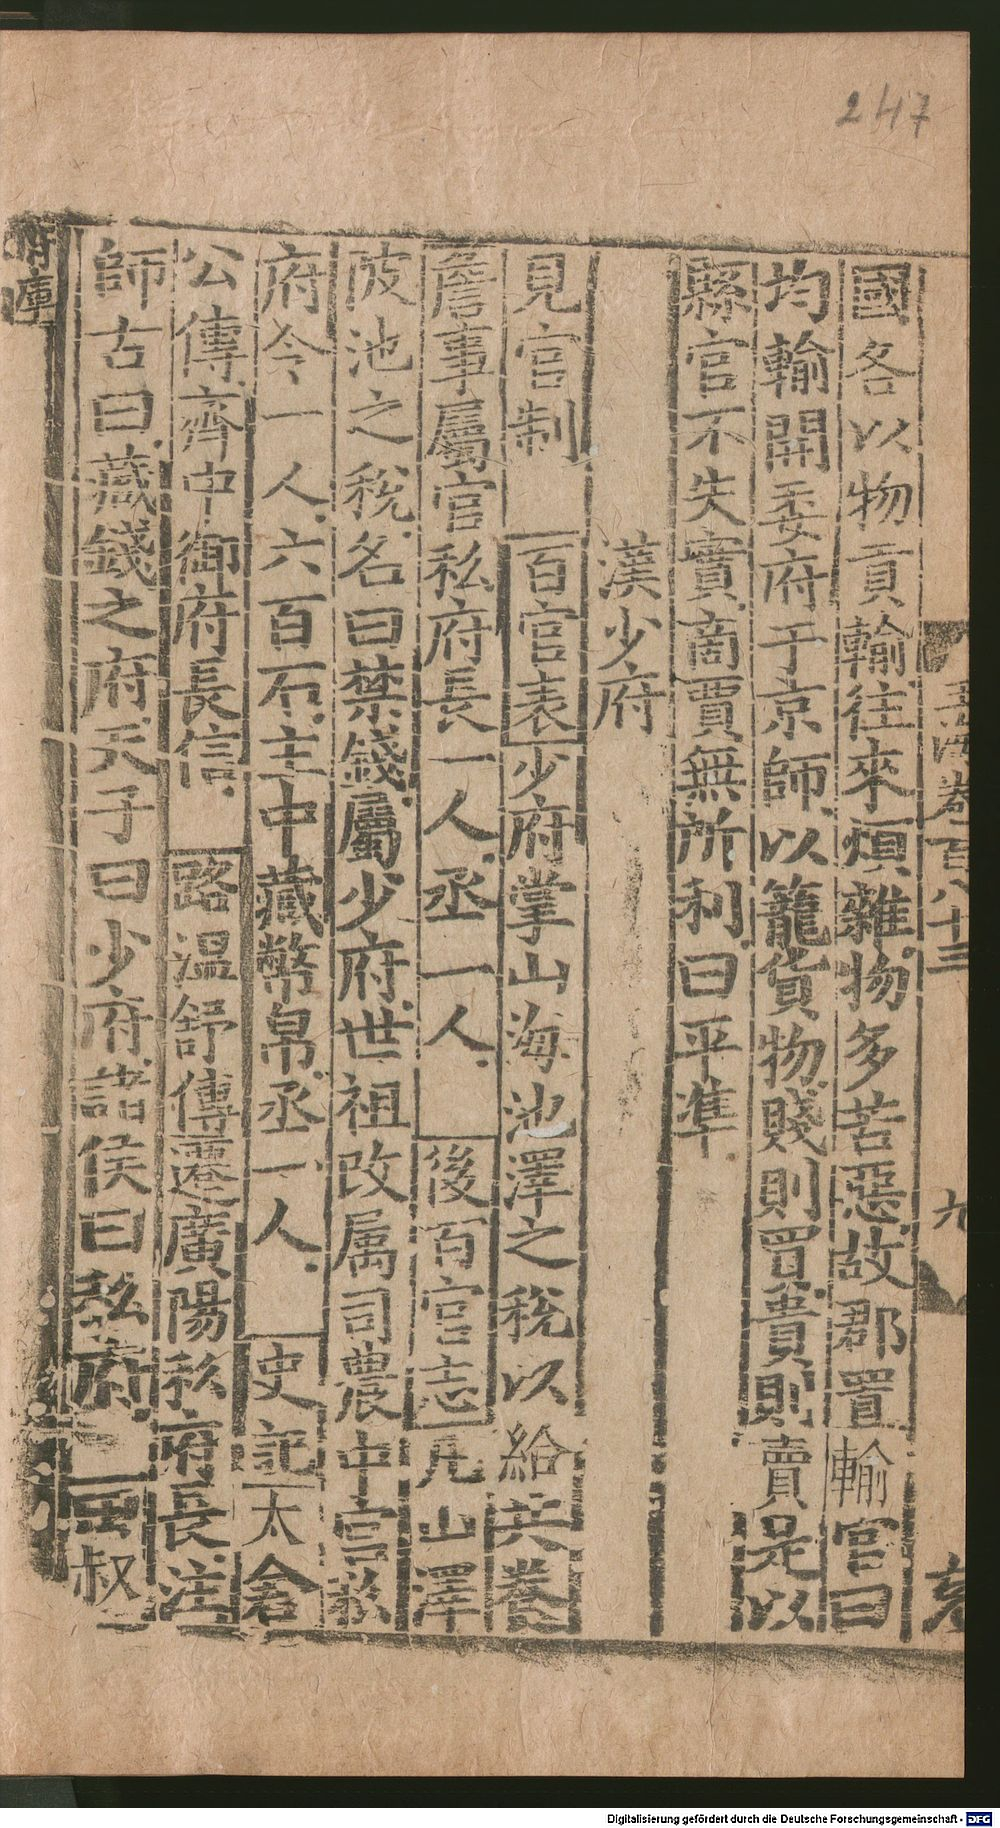 247
玉海卷百八十三
九
國各以物貢輸往來煩雜物多苦惡故郡置輸官曰
均輸開委府于京師以籠貨物賤則買貴則賣是以
縣官不失實商賈無所利曰平準
漢少府
見官制 百官表少府掌山海池澤之稅以給共養
詹事屬官私府長一人丞一人 後百官志凡山澤
陂池之稅名曰禁錢屬少府世祖改属司農中官私
府令一人六百石主中藏幣帛丞一人 史記太倉
公傳齊中御府長信 路温舒傳遷廣陽私府長注
師古曰藏錢之府天子曰少府諸侯曰私府 叔
府庫
Digitalisierung gefördert durch die Deutsche Forschungsgemeinschaft - DFG